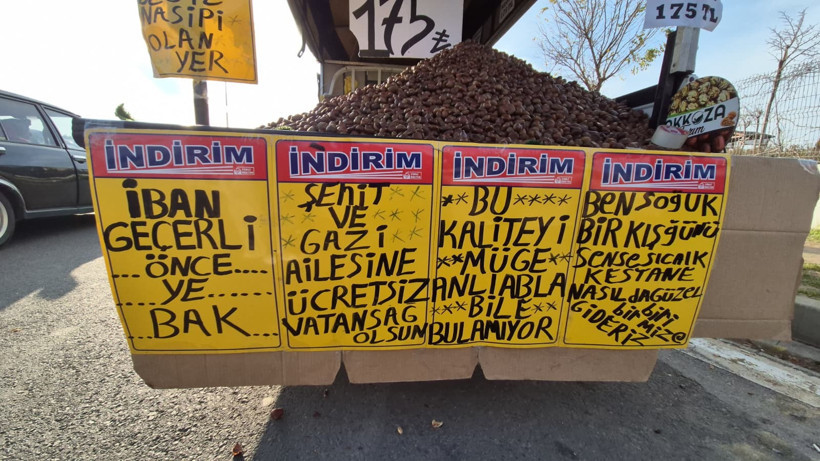 NASİPİ
OLAN
YER
175₺
175TL
İNDİRİM
İBAN
GEÇERLİ
....ÖNCE.....
....YE....
....BAK....
İNDİRİM
ŞEHİT
VE
GAZİ
AİLESİNE
ÜCRETSİZ
VATANSAG
OLSUN
İNDİRİM
**BU****
KALİTEYİ
**MÜGE*
ANLIABLA
**BİLE**
BULAMIYOR
İNDİRİM
BEN SOĞUK
BİR KIŞ GÜNÜ
SENSE SICAIK
KESTANE
NASIL DAGÜZEL
GİDERİZ
birbiri
mize